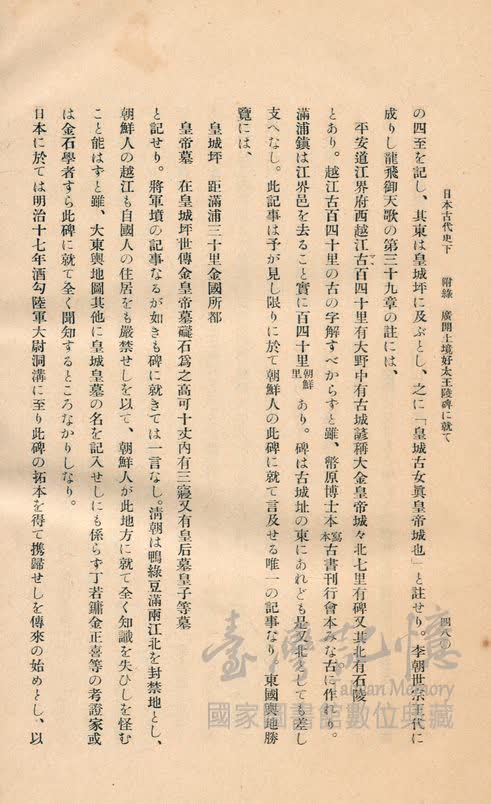 日本古代史下　附錄　廣開土境好太王陵碑に就て
四八
の四至を記し、其東は皇城坪に及ぶとし、之に「皇城古女眞皇帝城也」と註せり。李朝世宗王代に
成りし龍飛御天歌の第三十九章の註には、
平安道江界府西越江古百四十里有大野中有古城諺稱大金皇帝城々北七里有碑又其北有石陵
とあり。越江古百四十里の古の字解すべからずと雖、幣原博士本寫本古書刊行會本みな古に作れり。
滿浦鎭は江界邑を去ること實に百四十里朝鮮里あり。碑は古城址の東にあれども是又北としても差し
支へなし。此記事は予が見し限りに於て朝鮮人の此碑に就て言及せる唯一の記事なり。東國輿地勝
覽には、
皇城坪　距滿浦三十里金國所都
皇帝墓　在皇城坪世傳金皇帝墓礲石爲之高可十丈內有三寢又有皇后墓皇子等墓
と記せり。將軍墳の記事なるが如きも碑に就きては一言なし。淸朝は鴨綠豆滿兩江北を封禁地とし、
朝鮮人の越江も自國人の住居をも嚴禁せしを以て、朝鮮人が此地方に就て全く知識を失ひしを怪む
こと能はずと雖、大東輿地圖其他に皇城皇墓の名を記入せしにも係らず丁若鏞金正喜等の考證家或
は金石學者すら此碑に就て全く聞知するところなかりしなり。
日本に於ては明治十七年酒勾陸軍大尉洞溝に至り此碑の拓本を得て携歸せしを傳來の始めとし、以
臺灣記憶
Taiwan Memory
國家圖書館數位典藏